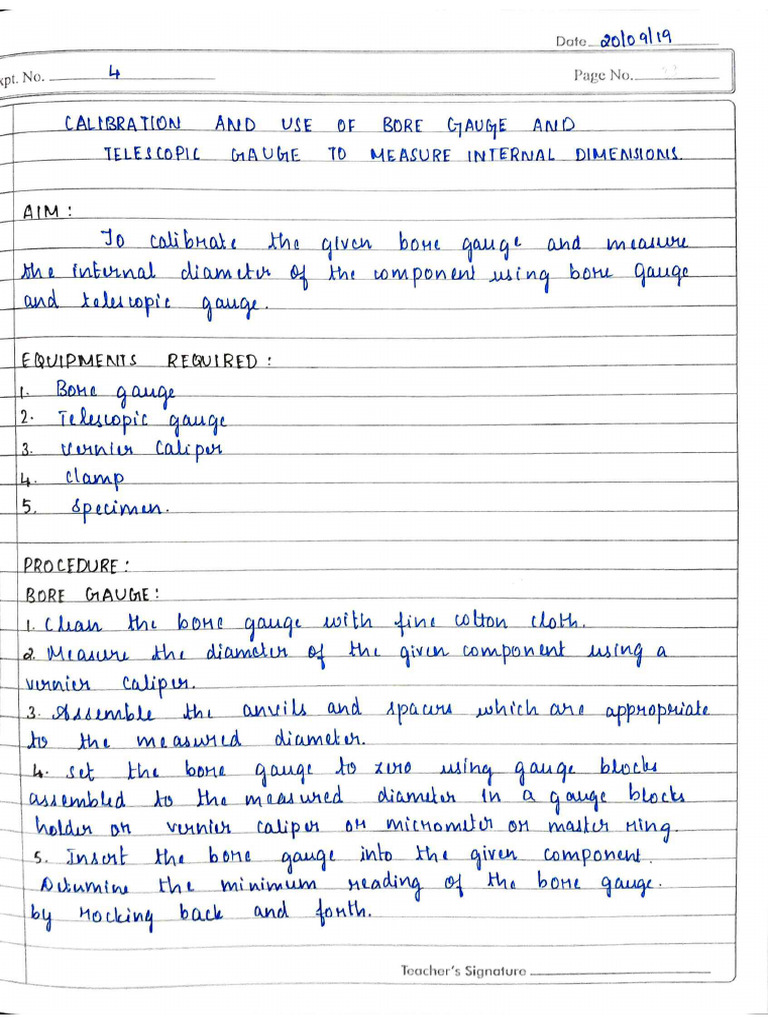 Date 20/09/19
xpt. No. 4
Page No.
CALIBRATION AND USE OF BORE GAUGE AND
TELESCOPIC GAUGE TO MEASURE INTERNAL DIMENSIONS.
AIM :
To calibrate the given bore gauge and measure
the internal diameter of the component using bore gauge
and telescopic gauge.
EQUIPMENTS REQUIRED :
1. Bore gauge
2. Telescopic gauge
3. Vernier Caliper
4. Clamp
5. Specimen.
PROCEDURE :
BORE GAUGE :
1. Clean the bore gauge with fine cotton cloth.
2. Measure the diameter of the given component using a
vernier caliper.
3. Assemble the anvils and spacers which are appropriate
to the measured diameter.
4. Set the bore gauge to zero using gauge blocks
assembled to the measured diameter in a gauge blocks
holder or vernier caliper or micrometer or master ring.
5. Insert the bore gauge into the given component.
Determine the minimum reading of the bore gauge.
by rocking back and forth.
Teacher's Signature